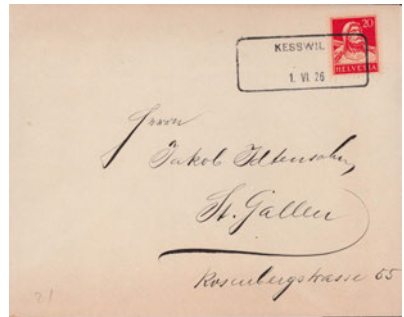 20
HELVETIA
KESSWIL
1. VI. 26
Herrn
Jakob Idtensohn,
St. Gallen
Rosenbergstrasse 65